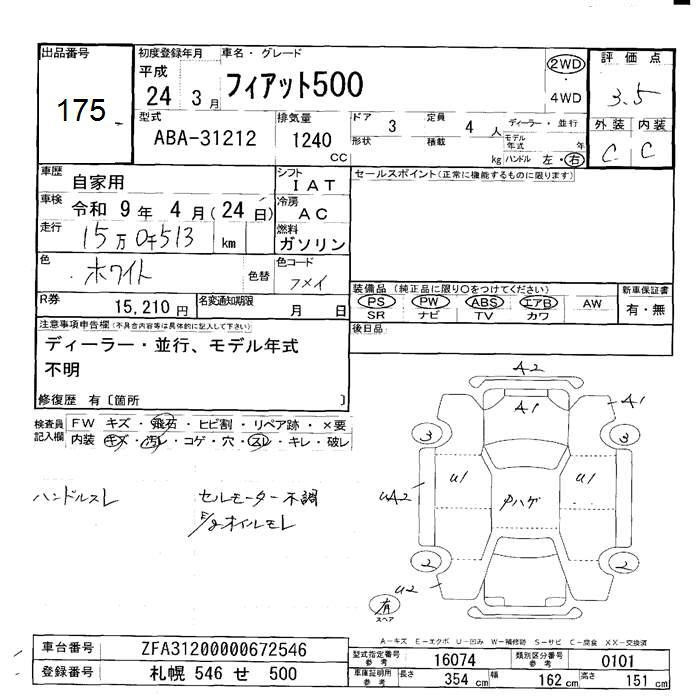 出品番号
175
初度登録年月
平成
24 3月
車名・グレード
フィアット500
2WD
・
4WD
評価点
3.5
外装 内装
C C
型式
ABA-31212
排気量
1240
CC
ドア 3
形状
定員 4 人
積載 kg
ディーラー・並行
モデル年式 年
ハンドル 左・右
車歴
自家用
車検 令和 9年 4月(24日)
走行
15万0千513 km
色
ホワイト
色替
シフト
IAT
冷房
AC
燃料
ガソリン
色コード
フメイ
R券
15,210円
名変通知期限
月 日
セールスポイント(正常に機能するものに限ります)
装備品 (純正品に限り○をつけてください)
PS PW ABS エアB AW
SR ナビ TV カワ
新車保証書
有・無
後日品
注意事項申告欄(不具合内容等は具体的に記入して下さい)
ディーラー・並行、モデル年式
不明
修復歴 有〔箇所 〕
検査員
記入欄
FW キズ・飛石・ヒビ割・リペア跡・×要
内装 キズ・汚レ・コゲ・穴・スレ・キレ・破レ
ハンドルスレ
セルモーター不調
E/gオイルモレ
A2
A1
A1
3
3
U1
U1
UA2
ハゲ
2
2
U2
有
スペア
A-キズ E-エクボ U-凹み W-補修跡 S-サビ C-腐食 XX-交換済
車台番号
ZFA31200000672546
登録番号
札幌 546 せ 500
型式指定番号
参考
16074
類別区分番号
参考
0101
車庫証明用
参考
長さ 354 cm
幅 162 cm
高さ 151 cm